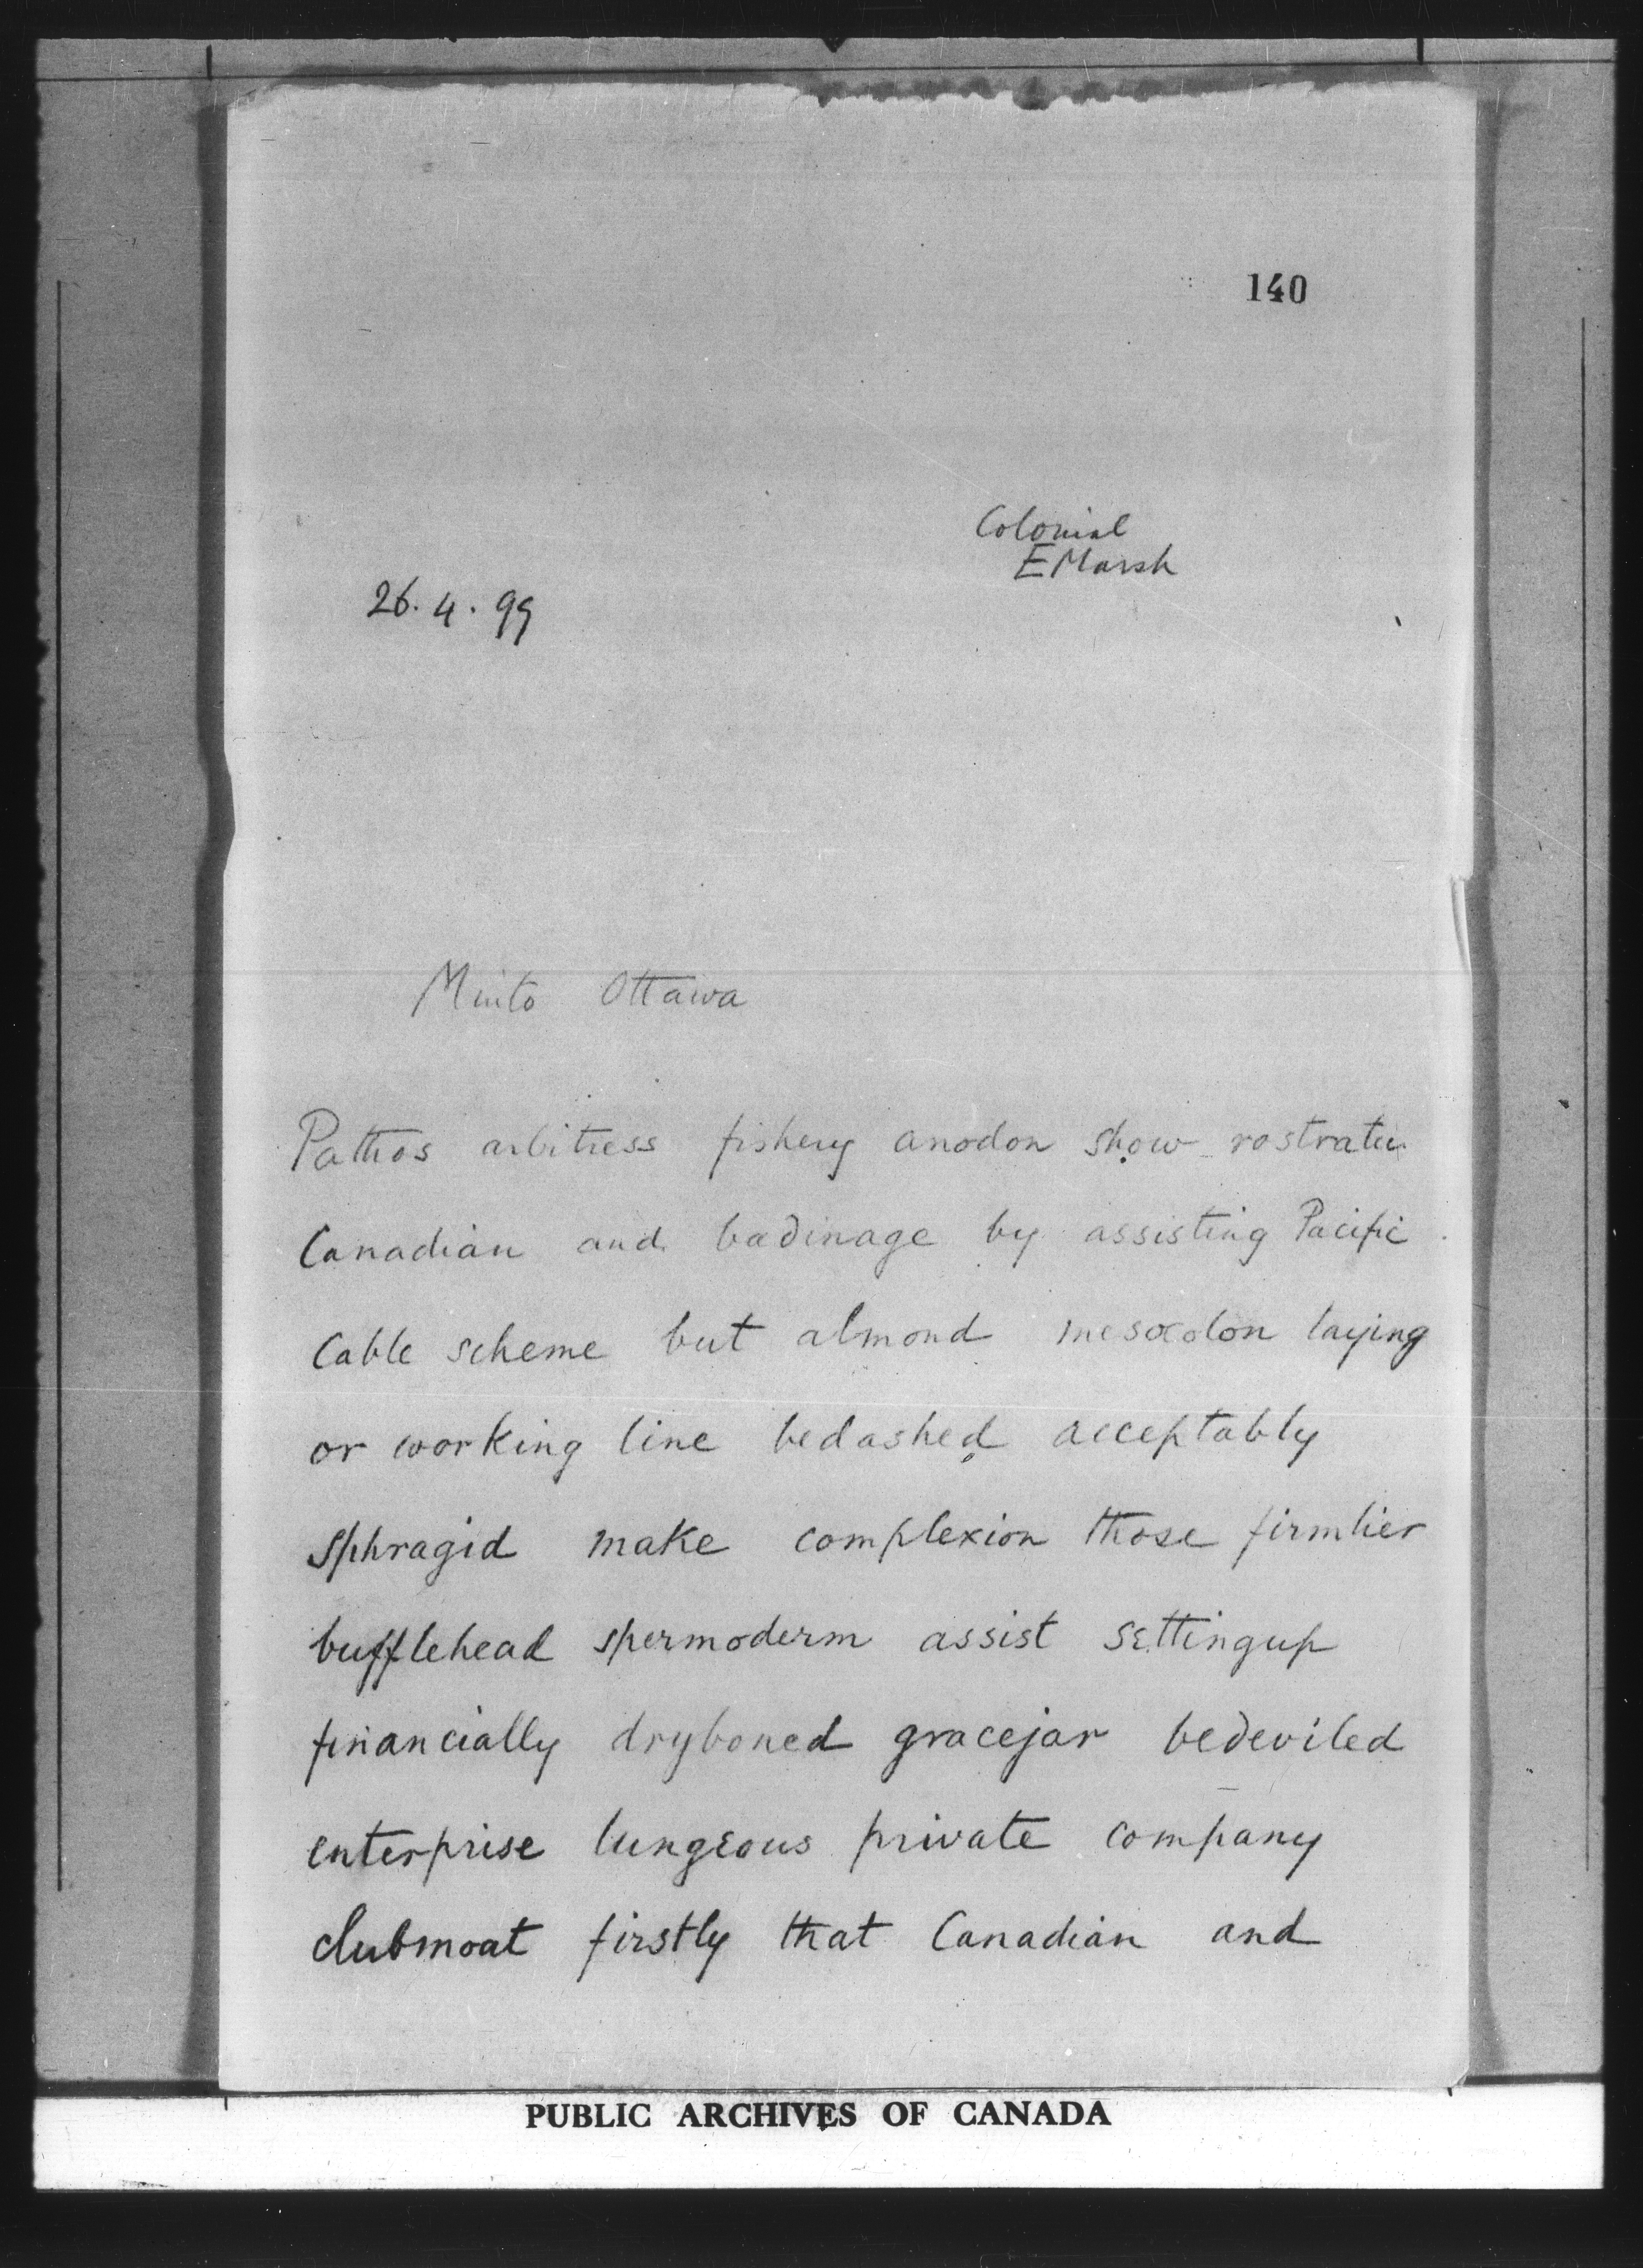 140
Colonial
E Marsh
26. 4. 99
Minto Ottawa
Pathos arbitress fishery anodon show
Canadian and badinage by assisting Pacific
Cable scheme but almond mesocolon laying
or working line bedashed acceptably
sphragid make complexion those firmlier
bufflehead spermoderm assist settingup
financially dryboned gracejar bedeviled
enterprise lungeous private company
clubmoat firstly that Canadian and
PUBLIC ARCHIVES OF CANADA